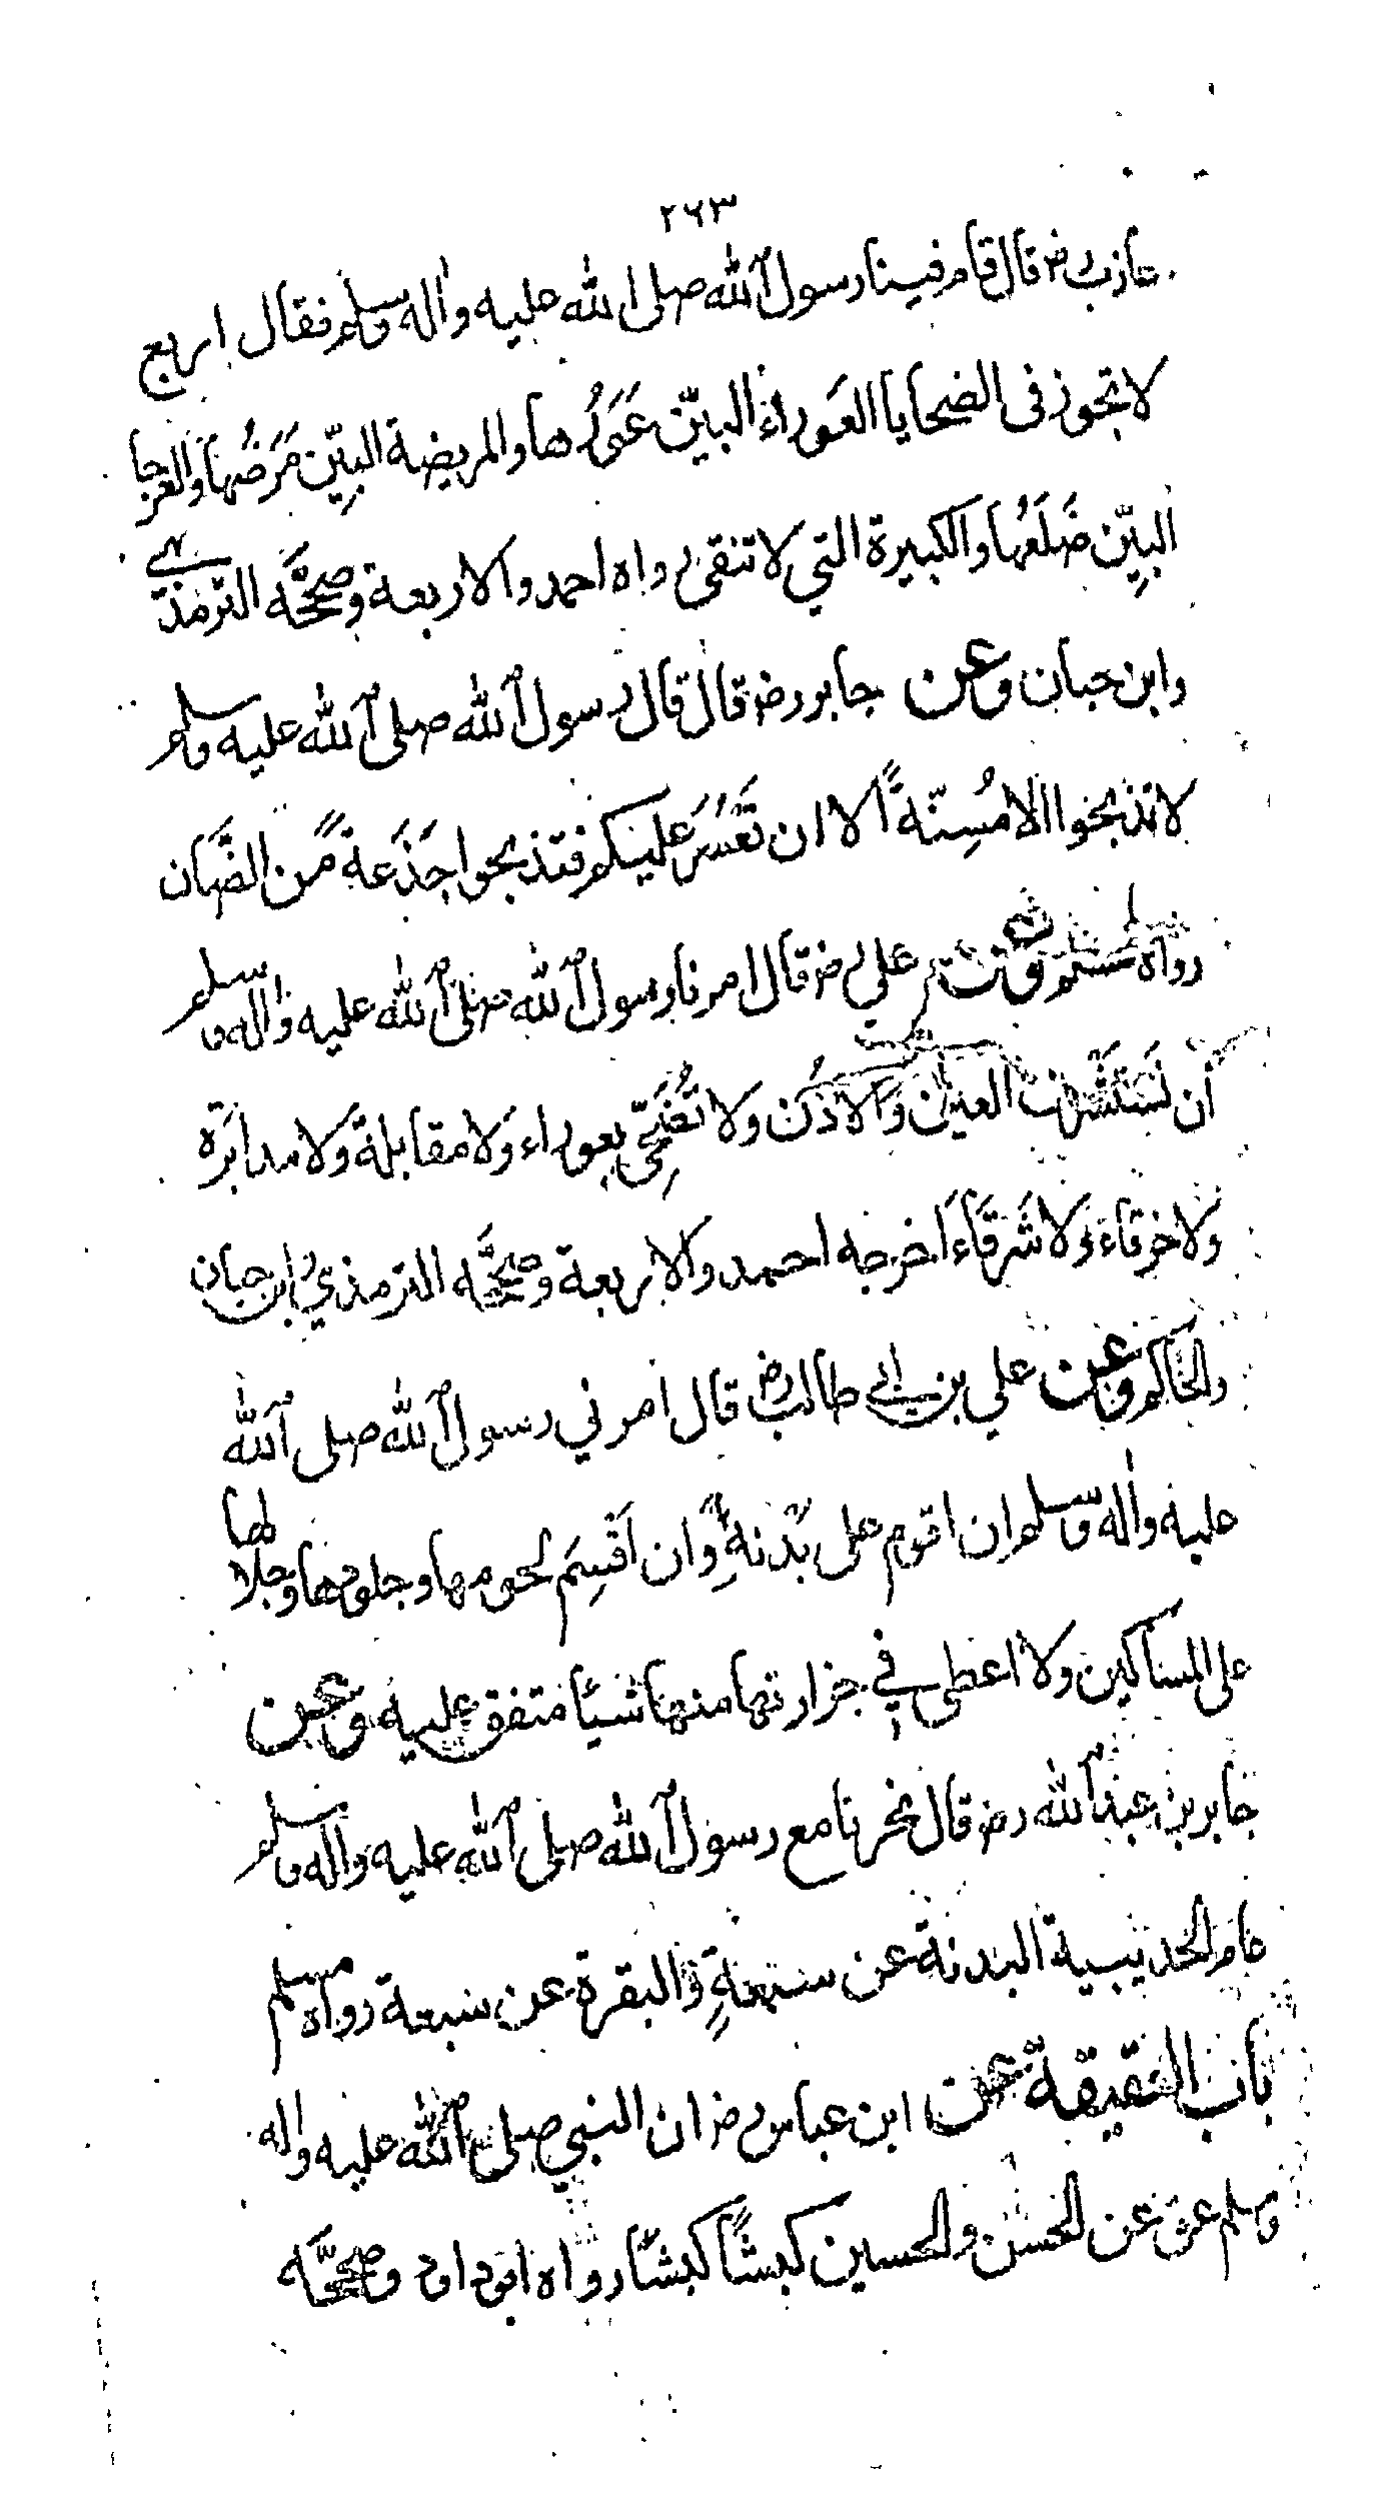 ٢٦٣
عازب رض قال قام فينا رسول الله صلى الله عليه واله وسلم فقال اربع
لا تجوز في الضحايا العَوراءُ البيّن عَوَرُها والمريضة البيِّن مَرَضُها والعرجا
البيِّن ضَلَعُها والكبيرة التي لا تنقى رواه احمد والاربعة وصحَّحه الترمذي
وابن حبان وعن جابر رض قال قال رسول الله صلى الله عليه وسلم
لا تذبحوا الا مُسِنّةً الا ان تَعَسَّرَ عليكم فتذبحوا جَذَعةً من الضَّان
رواه مسلم وعن علي رض قال امرنا رسول الله صلى الله عليه واله وسلم
أن نَستَشرِف العين والاذُن ولا نُضَحِّيَ بعوراء ولا مقابلة ولا مدابَرة
ولا خرقاءَ ولا شَرقَاءَ اخرجه احمد والاربعة وصحَّحه الترمذي وابن حبان
والحاكم وعن علي بن ابي طالب رض قال امرني رسول الله صلى الله
عليه واله وسلم ان اقوم على بُدنهِ وان اَقْسِمَ لحومها وجلودها وجلالها
على المساكين ولا اعطى في جزارتها منها شيئا متفق عليه وعن
جابر بن عبد الله رض قال نحرنا مع رسول الله صلى الله عليه واله وسلم
عام الحديبية البدنة عن سبعةٍ والبقرة عن سبعة رواه مسلم
باب العقيقة عن ابن عباس رض ان النبي صلى الله عليه واله
وسلم عق عن الحسن والحسين كبشًا كبشًا رواه ابو داود وصحَّحه